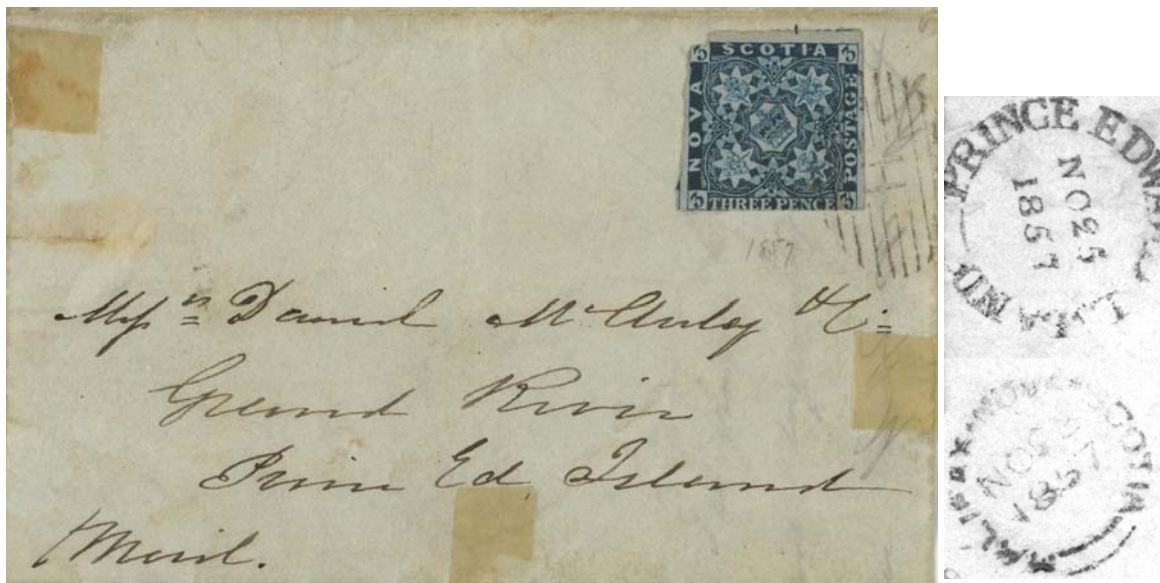 NOVA SCOTIA POSTAGE
THREE PENCE
1857
Mess<sup>rs</sup> Daniel McAuley & Co
Grand River
Prince Ed Island
Mail.
PRINCE EDWA
LAND
NO 25
1857
HALIFAX NOVA SCOTIA
NO
1857